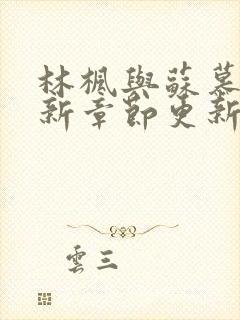 林楓與蘇慕
新章節更新
雲三